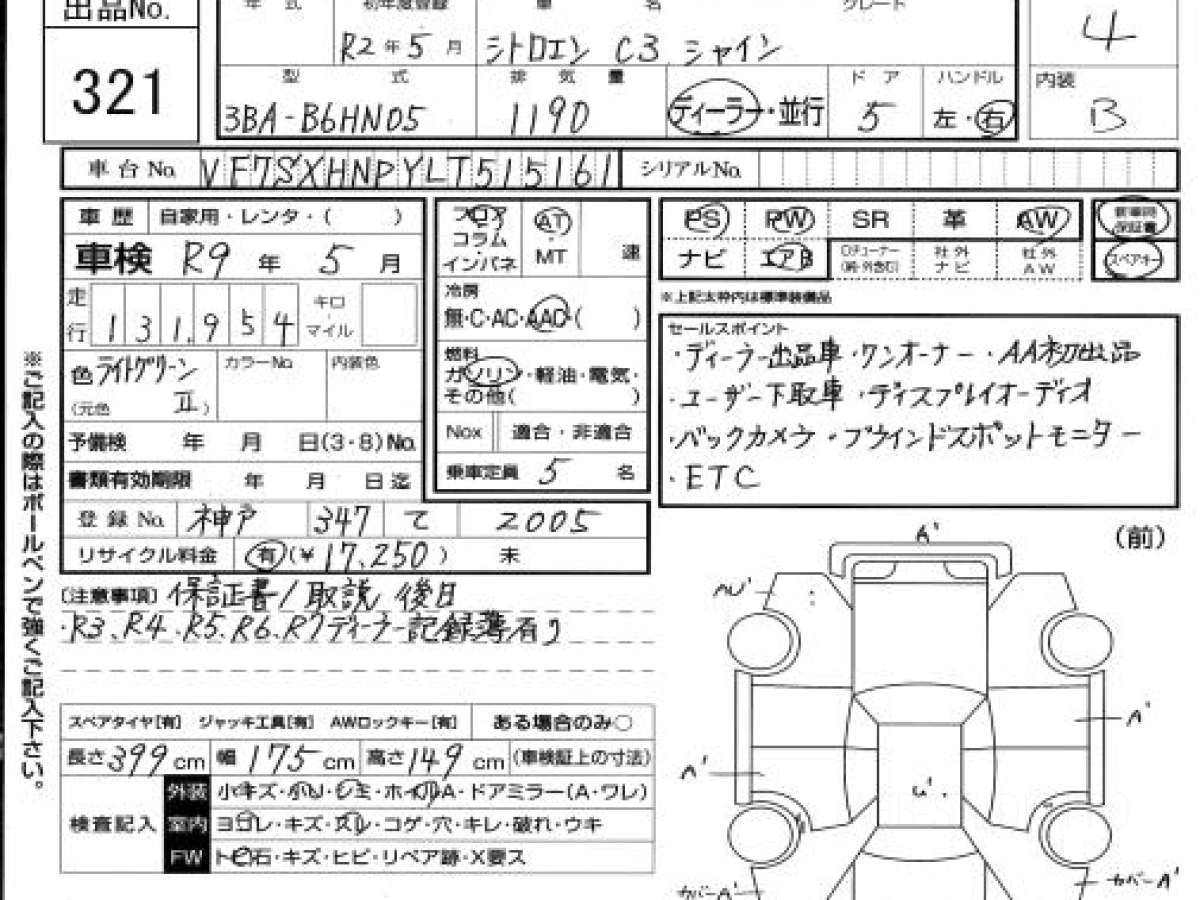 出品No.
年式 初年度登録 車名 グレード
321
R2年5月 シトロエン C3 シャイン
4
型式 排気量 ディーラー・並行 ドア ハンドル 内装
3BA-B6HN05 1190 5 左・右 B
車台No. VF7SXHNPYLT515161 シリアルNo.
車歴 自家用・レンタ・( )
車検 R9年5月
走行 131,954 キロ・マイル
色 ライトグリーンⅡ カラーNo. 内装色
(元色 )
予備検 年 月 日(3・8)No.
書類有効期限 年 月 日迄
登録No. 神戸 347 て 2005
リサイクル料金 有(¥17,250) 未
フロア
コラム
インパネ
AT・MT 速
冷房
無・C・AC・AAC・( )
燃料
ガソリン・軽油・電気・
その他( )
Nox 適合・非適合
乗車定員 5 名
PS PW SR 革 AW 新車時保証書
ナビ エアB 社外ナビ 社外AW スペアキー
※上記太枠内は標準装備品
セールスポイント
・ディーラー出品車・ワンオーナー・AA初出品
・ユーザー下取車・ディスプレイオーディオ
・バックカメラ・ブラインドスポットモニター
・ETC
(注意事項) 保証書/取説 後日
・R3、R4、R5、R6、R7ディーラー記録簿有り
スペアタイヤ[有] ジャッキ工具[有] AWロックキー[有] ある場合のみ○
長さ399cm 幅175cm 高さ149cm (車検証上の寸法)
検査記入
外装 小キズ・小U・シミ・ホイルA・ドアミラー(A・ワレ)
室内 ヨゴレ・キズ・スレ・コゲ・穴・キレ・破れ・ウキ
FW トビ石・キズ・ヒビ・リペア跡・X要ス
※ご記入の際はボールペンで強くご記入下さい。
(前)
A'
AU'
A'
A'
U'
カバーA'
カバーA'